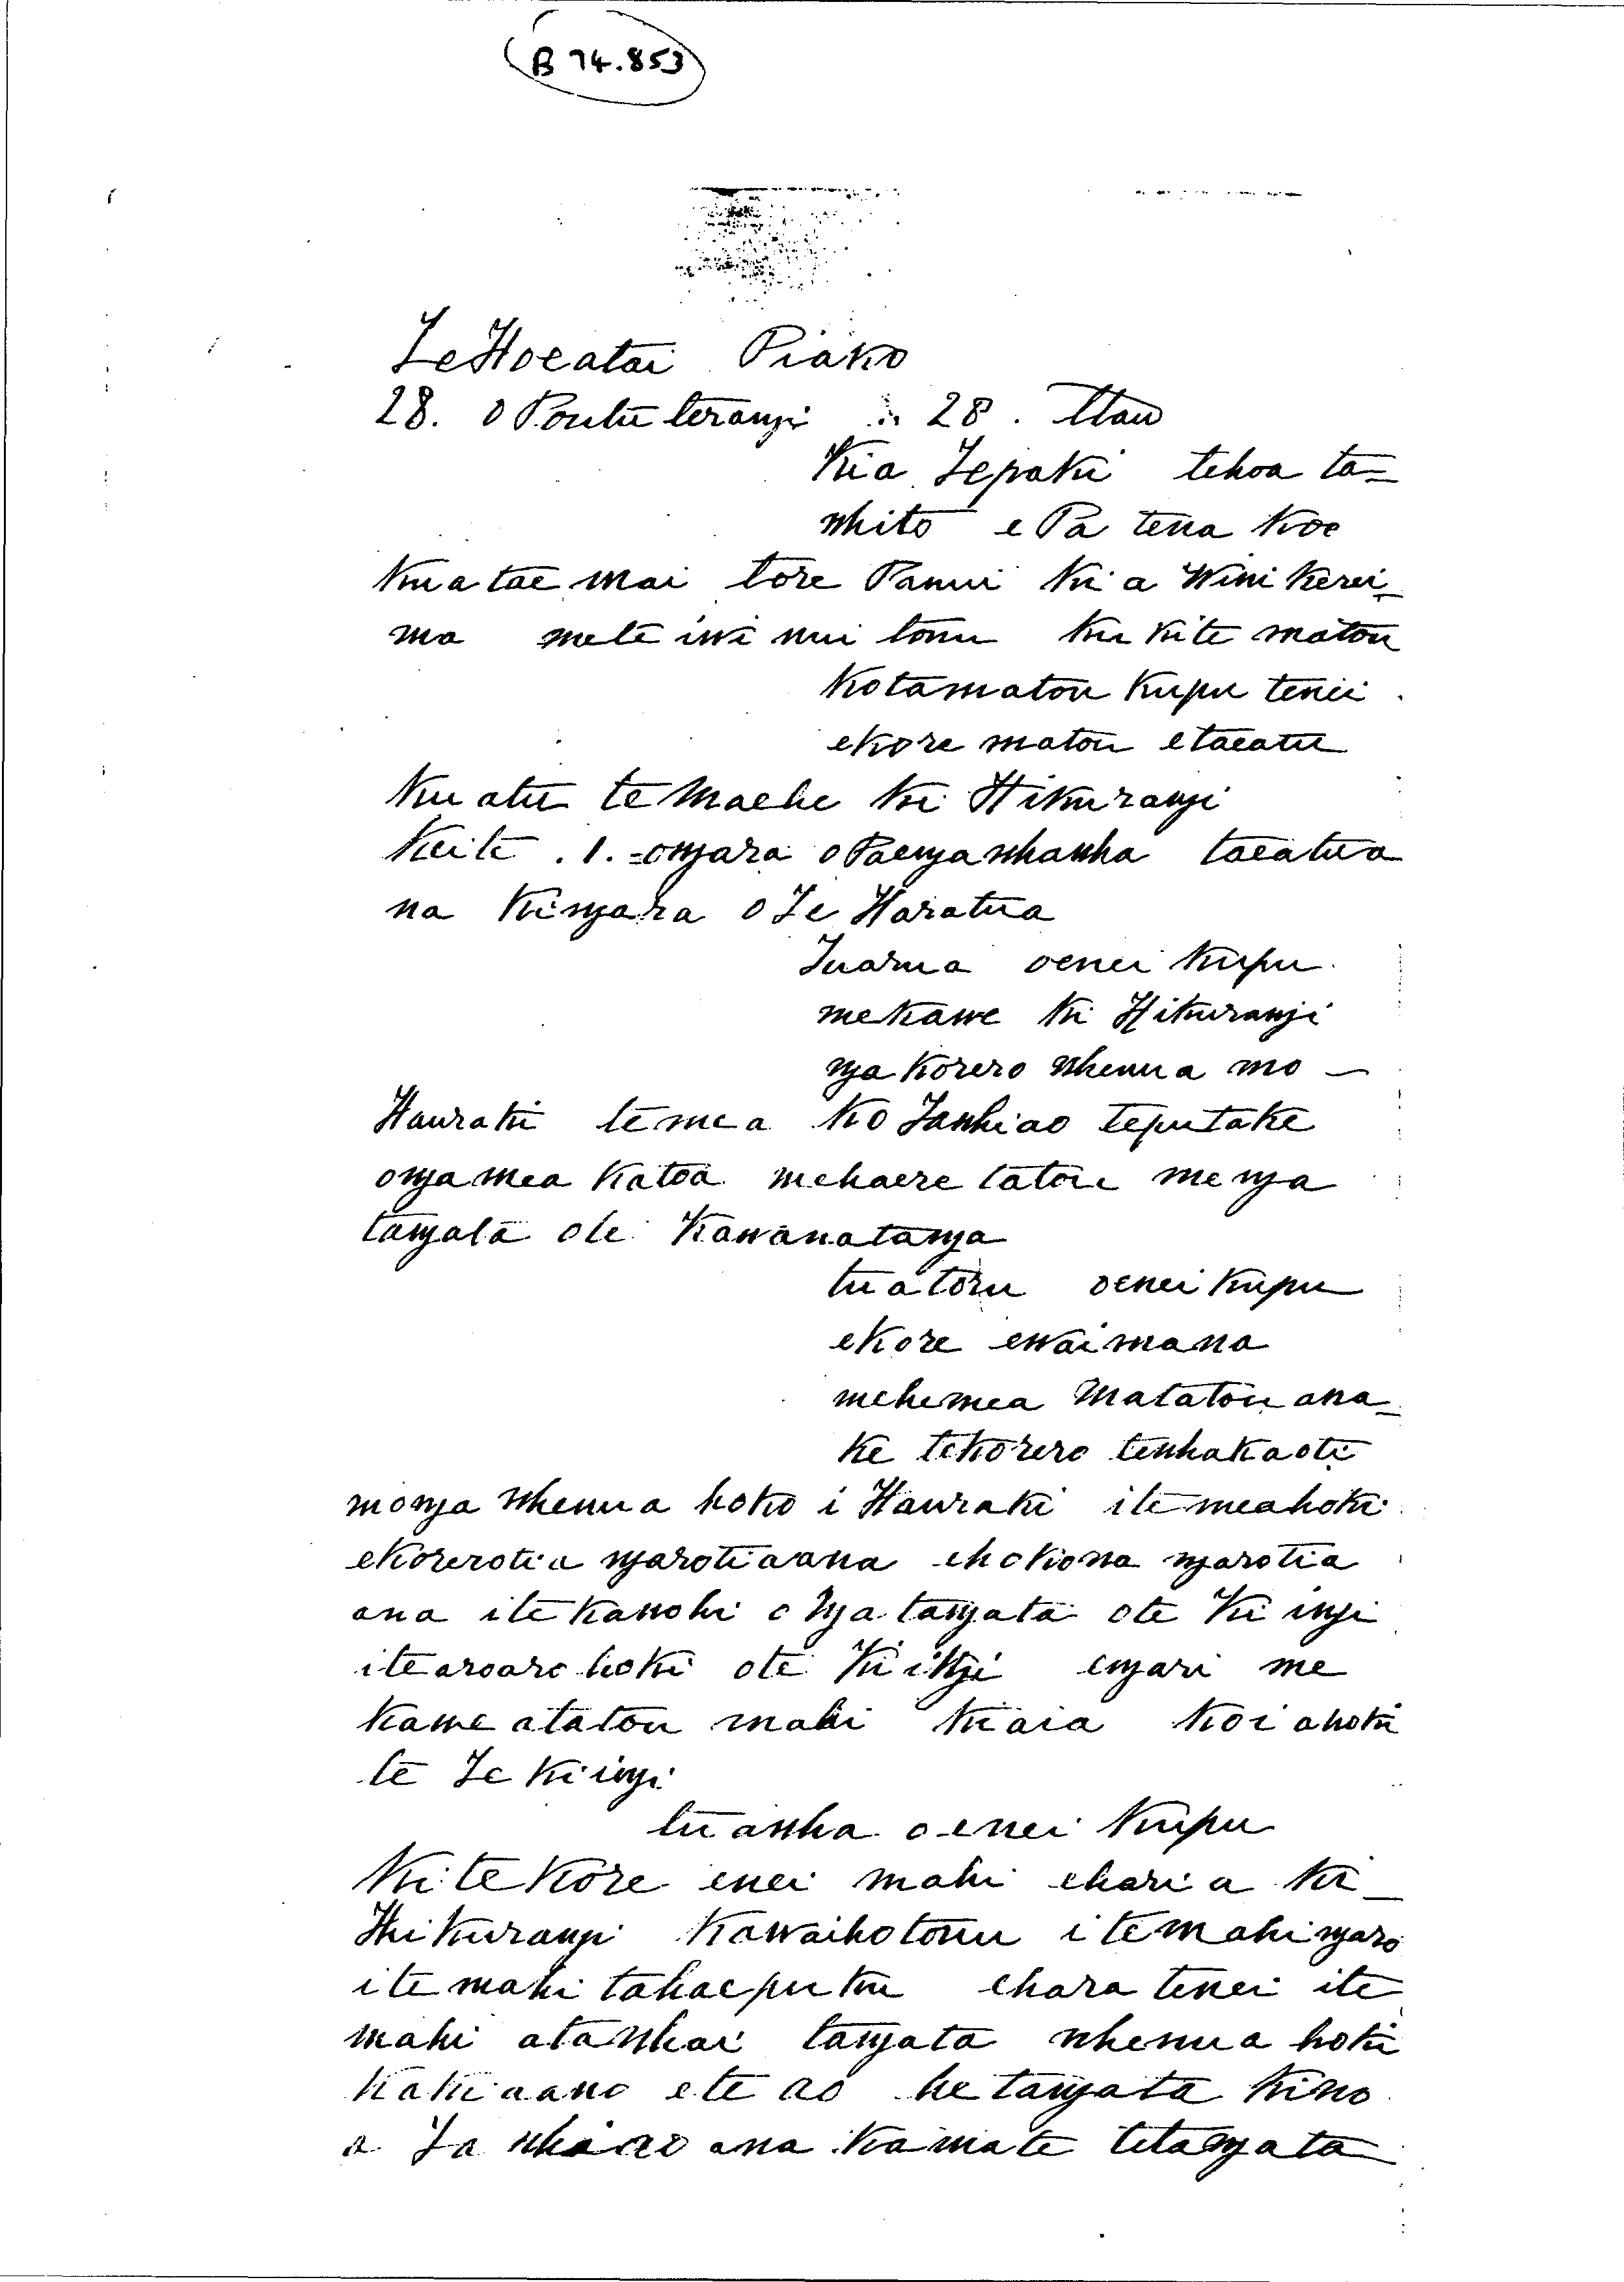 B 74.853
Te Hoeatai Piako
28. o Poutu terangi i 28. Tau
Kia Tepaki tehoa ta=
whito e Pa tena koe
Kua tae mai tore Panui kia Wini kerei_
ma mete iwi nui tonu ku kite matou
Kotamatou kupu tenei.
ekore matou etaeatu
Ku atu te Maehe ki Hikurangi
Keite .1. =ongara oPaengawhawha taeatua
na kingara o Te Haratua
Tuarua oenei kupu.
mekawe ki Hikurangi
nga korero whenua mo —
Hauraki temea ko Tawhiao teputake
onga mea katoa mehaere tatou me nga
tangata ote Kawanatanga
tuatoru oenei kupu
ekore ewaimana
mehemea Matatou ana_
ke tekorero tewhakaoti
monga whenua hoko i Hauraki ite meahoki
ekorerotia ngarotiaana ehokona ngarotia
ana ite kanohi o nga tangata ote Kiingi
itearoaro hoki ote Kiingi engari me
kawe atatou mahi kiaia koiahoki
te Te Kiingi
tuawha oenei kupu
Kitekore enei mahi eharia ki_
Hikurangi Kawaihotonu itemahingaro
ite mahi tahaepuku ehara tenei ite
mahi atawhai tangata whenua hoki
Kakiaano ete ao hetangata kino
a Tawhiao ana kamate tetangata